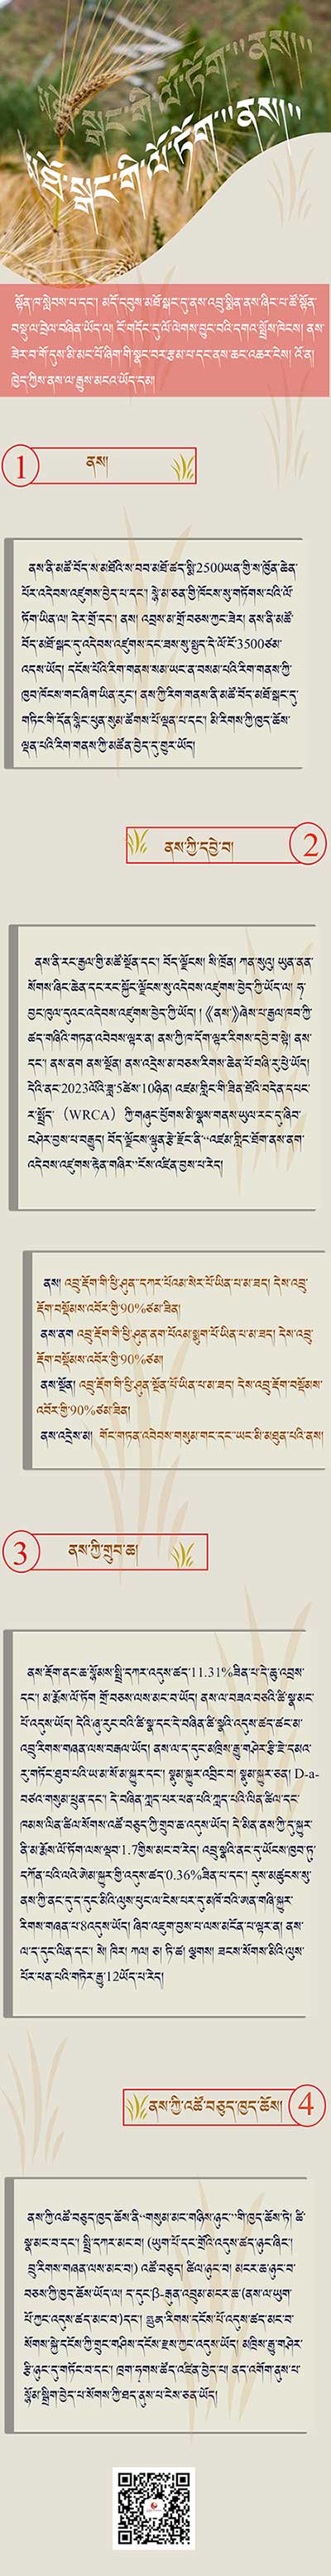 "ཐོ་སྒང་གི་ལོ་ཏོག་"ནས།"
"ཐོ་སྒང་གི་ལོ་ཏོག་"ནས།"
སྟོན་ཁ་སླེབས་པ་དང་། མདོ་དབུས་མཐོ་སྒང་དུ་ནས་འབྲུ་སྨིན་ནས་ཞིང་པ་ཚོ་སྟོན་
བསྡུ་ལ་བྲེལ་བཞིན་ཡོད་ལ། ངོ་གདོང་དུ་ལོ་ལེགས་བྱུང་བའི་དགའ་སྤྲོས་ཁེངས། ནས་
ཟེར་བ་གོ་དུས་མི་མང་པོ་ཞིག་གི་སྣང་བར་རྩམ་པ་དང་ནས་ཆང་འཆར་ངེས། འོ་ན།
ཁྱེད་ཀྱིས་ནས་ལ་རྒྱུས་མངའ་ཡོད་དམ།
1
ནས།
ནས་ནི་མཚོ་བོད་ས་མཐོའི་ས་བབ་མཐོ་ཚད་སྨི་2500ཡན་གྱི་ས་ཁྱོན་ཆེན་
པོར་འདེབས་འཛུགས་བྱེད་པ་དང་། སྙེ་མ་ཅན་གྱི་ཁོངས་སུ་གཏོགས་པའི་ལོ་
ཏོག་ཡིན་ལ། དེར་གྲོ་དང་། ནས། འབྲས་མ་གྲོ་བཅས་ཀྱང་ཟེར། ནས་ནི་མཚོ་
བོད་མཐོ་སྒང་དུ་འདེབས་འཛུགས་དང་ཟས་སུ་སྤྱད་དེ་ལོ་ངོ་3500ཙམ་
འདས་ཡོད། དངོས་པོའི་རིག་གནས་སམ་ཡང་ན་བསམ་པའི་རིག་གནས་ཀྱི་
ཁྱབ་ཁོངས་གང་ཞིག་ཡིན་རུང་། ནས་ཀྱི་རིག་གནས་ནི་མཚོ་བོད་མཐོ་སྒང་དུ་
གཏིང་གི་དོན་སྙིང་ཕུན་སུམ་ཚོགས་པོ་ལྡན་པ་དང་། མི་རིགས་ཀྱི་ཁྱད་ཆོས་
ལྡན་པའི་རིག་གནས་ཀྱི་མཚོན་བྱེད་དུ་གྱུར་ཡོད།
ནས་ཀྱི་དབྱེ་བ།
2
ནས་ནི་རང་རྒྱལ་གྱི་མཚོ་སྔོན་དང་། བོད་ལྗོངས། སི་ཁྲོན། ཀན་སུའུ། ཡུན་ནན་
སོགས་ཞིང་ཆེན་དང་རང་སྐྱོང་ལྗོངས་སུ་འདེབས་འཛུགས་བྱེད་ཀྱི་ཡོད་ལ། ཧྭ་
བྱང་ཁུལ་དུའང་འདེབས་འཛུགས་བྱེད་ཀྱི་ཡོད། །《ནས་》ཞེས་པ་རྒྱལ་ཁབ་ཀྱི་
ཚད་གཞིའི་གཏན་འབེབས་ལྟར་ན། ནས་ཀྱི་ཁ་དོག་ལྟར་རིགས་དབྱེ་བ་སྟེ། ནས་
དང་། ནས་ནག ནས་སྔོན། ནས་འདྲེས་མ་བཅས་རིགས་ཆེན་པོ་བཞི་རུ་ཕྱེ་ཡོད།
དེའི་ནང་2023ལོའི་ཟླ་5ཚེས་10ཉིན། འཛམ་གླིང་གི་ཟིན་ཐོའི་བདེན་དཔང་
ར་སྤྲོད་ (WRCA) ཀྱི་གཞུང་ཕྱོགས་མི་སྣས་གནས་ཡུལ་རང་དུ་ཞིབ་
བཤེར་བྱས་པ་བརྒྱུད། བོད་ལྗོངས་ལྷུན་རྩེ་རྫོང་ནི་"འཛམ་གླིང་ཐོག་ནས་ནག་
འདེབས་འཛུགས་རྟེན་གཞིར་"ངོས་འཛིན་བྱས་པ་རེད།
ནས། འབྲུ་རྡོག་གི་ཕྱི་ཤུན་དཀར་པོའམ་སེར་པོ་ཡིན་པ་མ་ཟད། དེས་འབྲུ་
རྡོག་བསྡོམས་འབོར་གྱི་90%ཙམ་ཟིན།
ནས་ནག འབྲུ་རྡོག་གི་ཕྱི་ཤུན་ནག་པོའམ་སྨུག་པོ་ཡིན་པ་མ་ཟད། དེས་འབྲུ་
རྡོག་བསྡོམས་འབོར་གྱི་90%ཙམ།
ནས་སྔོན། འབྲུ་རྡོག་གི་ཕྱི་ཤུན་སྔོན་པོ་ཡིན་པ་མ་ཟད། དེས་འབྲུ་རྡོག་བསྡོམས་
འབོར་གྱི་90%ཙམ་ཟིན།
ནས་འདྲེས་མ། གོང་གཏན་འབེབས་གསུམ་གང་དང་ཡང་མི་མཐུན་པའི་ནས།
3
ནས་ཀྱི་གྲུབ་ཆ།
ནས་རྡོག་ནང་ཆ་སྙོམས་སྤྲི་དཀར་འདུས་ཚད་11.31%ཟིན་པ་དེ་ཆུ་འབྲས་
དང་། མ་རྨོས་ལོ་ཏོག གྲོ་བཅས་ལས་མང་བ་ཡོད། ནས་ལ་བཟའ་བཅའི་ཚི་སྣ་མང་
པོ་འདུས་ཡོད། དེའི་ཞུ་རུང་བའི་ཚི་སྣ་དང་དེ་བཞིན་ཚི་སྣའི་འདུས་ཚད་ཚང་མ་
འབྲུ་རིགས་གཞན་ལས་བརྒལ་ཡོད། ནས་ལ་ད་དུང་མཁྲིས་རྒྱུ་གཤེར་རྩི་ཇེ་དམའ་
རུ་གཏོང་ཐུབ་པའི་ཡ་མ་སོ་མ་སྐྱུར་དང་། སྣུམ་སྐྱུར་འབྲིང་བ། སྣུམ་སྐྱུར་ཅན། D-a-
བཙག་གསུམ་ཕྲུན་དང་། དེ་བཞིན་ཀླད་པར་ཕན་པའི་ཀླད་པའི་ཡིན་ཚིལ་དང་
ཁམས་ལིན་ཚིལ་སོགས་འཚོ་བཅུད་ཀྱི་གྲུབ་ཆ་འདུས་ཡོད། དེ་མིན་ནས་ཀྱི་དུ་སྐྱུར་
ནི་མ་རྨོས་ལོ་ཏོག་ལས་ལྡབ་1.7གྱིས་མང་བ་རེད། འབྲུ་སྣའི་ནང་དུ་ཡོངས་ཁྱབ་ཏུ་
དཀོན་པའི་ལའེ་ཨེམ་སྐྱུར་གྱི་འདུས་ཚད་0.36%ཟིན་པ་དང་། དུས་མཚུངས་སུ་
ནས་ཀྱི་ནང་དུ་ད་དུང་མིའི་ལུས་ཕུང་ལ་ངེས་པར་དུ་མཁོ་བའི་ཨན་གཞི་སྐྱུར་
རིགས་གཞན་པ་8འདུས་ཡོད། ཞིབ་འཇུག་བྱས་པ་ལས་མངོན་པ་ལྟར་ན། ནས་
ལ་ད་དུང་ལིན་དང་། སེ། ཁིར། ཀལ། ཅ། ཏི་ཚ། ལྕགས། ཟངས་སོགས་མིའི་ལུས་
པོར་ཕན་པའི་གཏེར་རྒྱུ་12ཡོད་པ་རེད།
ནས་ཀྱི་འཚོ་བཅུད་ཁྱད་ཆོས།
4
ནས་ཀྱི་འཚོ་བཅུད་ཁྱད་ཆོས་ནི་"གསུམ་མང་གཉིས་ཉུང་"གི་ཁྱད་ཆོས་ཏེ། ཚི་
སྣ་མང་བ་དང་། སྤྲི་དཀར་མང་བ། (ཡུག་པོ་དང་གྲོའི་འདུས་ཚད་ཉུང་ཞིང་།
འབྲུ་རིགས་གཞན་ལས་མང་བ།) འཚོ་བཅུད། ཚིལ་ཉུང་བ། མངར་ཆ་ཉུང་བ་
བཅས་ཀྱི་ཁྱད་ཆོས་ཡོད་ལ། ད་དུང་β-རྒུན་འབྲུམ་མངར་ཆ་(ནས་ལ་ཡུག་
པོ་ཀྱང་འདུས་ཚད་མང་བ་)དང་། ཐུན་རིགས་དངོས་པོ་འདུས་ཚད་མང་བ་
སོགས་སྐྱེ་དངོས་ཀྱི་གྲུང་གཤིས་དངོས་རྫས་ཀྱང་འདུས་ཡོད། མཁྲིས་རྒྱུ་གཤེར་
རྩི་ཉུང་དུ་གཏོང་བ་དང་། ཁྲག་ཧྲགས་ཚོད་འཛིན་བྱེད་པ། ནད་འགོག་ནུས་པ་
སྙོམ་སྒྲིག་བྱེད་པ་སོགས་ཀྱི་ཐད་ནུས་པ་ངེས་ཅན་ཡོད།